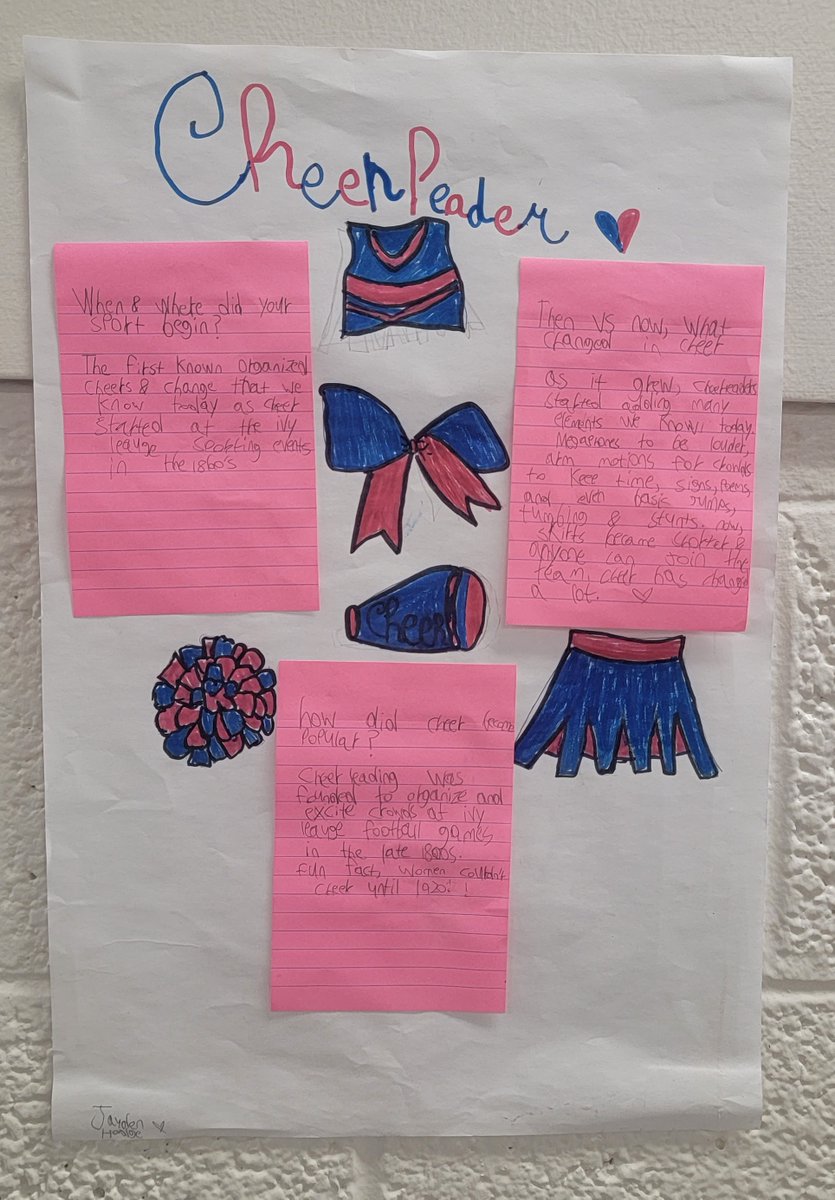 Cheerleader
When & where did your
sport begin?
The first known organized
cheers & change that we
know today as cheer
started at the ivy
leauge sporting events
in the 1860's
Then vs now, what
changed in cheer
as it grew, cheerleaders
started adding many
elements we know today.
Megaphones to be louder,
arm motions for crowds
to keep time, signs, poems
and even basic jumps,
tumbling & stunts. now,
skirts became shorter &
anyone can join the
team, cheer has changed
a lot.
Cheer
how did cheer become
popular?
Cheerleading was
founded to organize and
excite crowds at ivy
leauge football games
in the late 1800s.
fun fact, women couldn't
cheer until 1920!!
Jayden